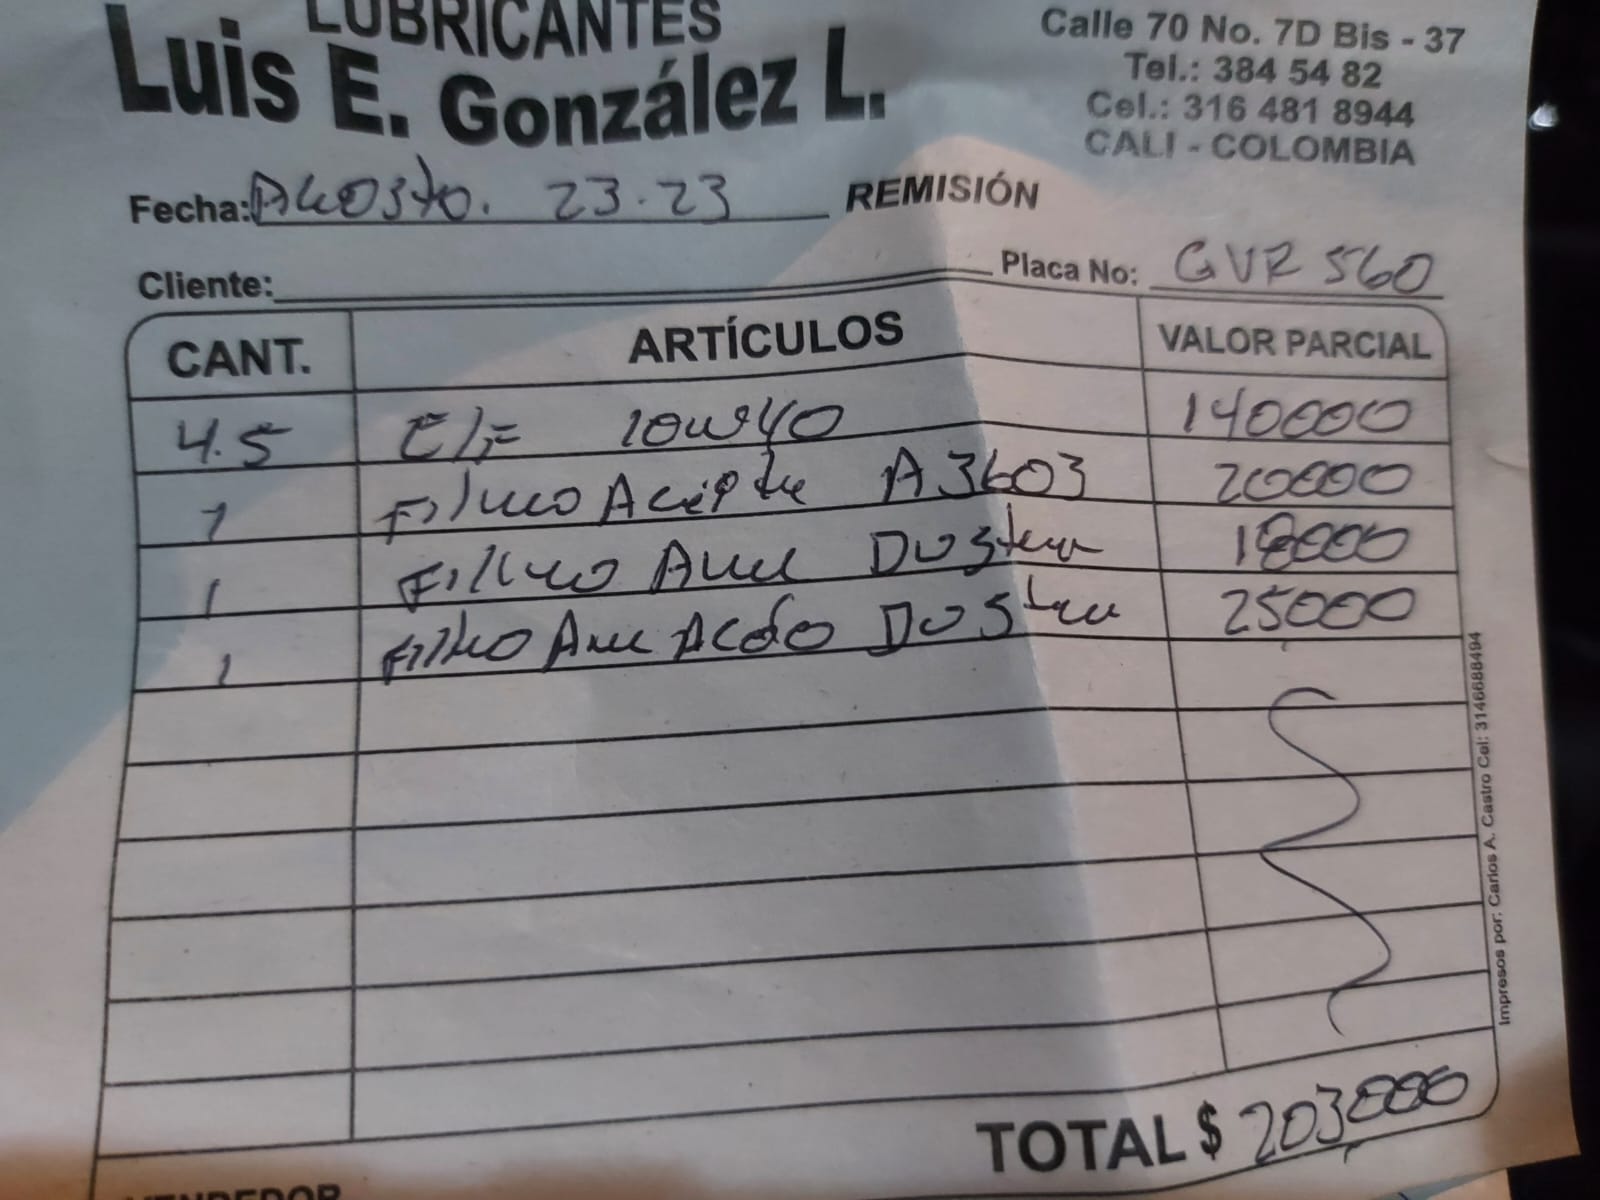 LUBRICANTES
Luis E. González L.
Calle 70 No. 7D Bis - 37
Tel.: 384 54 82
Cel.: 316 481 8944
CALI - COLOMBIA
Fecha: Agosto. 23.23 REMISIÓN
Cliente: Placa No: GVR 560
CANT. ARTÍCULOS VALOR PARCIAL
4.5 Elf 10w40 140000
1 Filtro Aceite A3603 20000
1 Filtro Aire Duster 18000
1 Filtro Aire Acdo Duster 25000
TOTAL $ 203000
VENDEDOR
Impresos por: Carlos A. Castro Cel: 3146688494